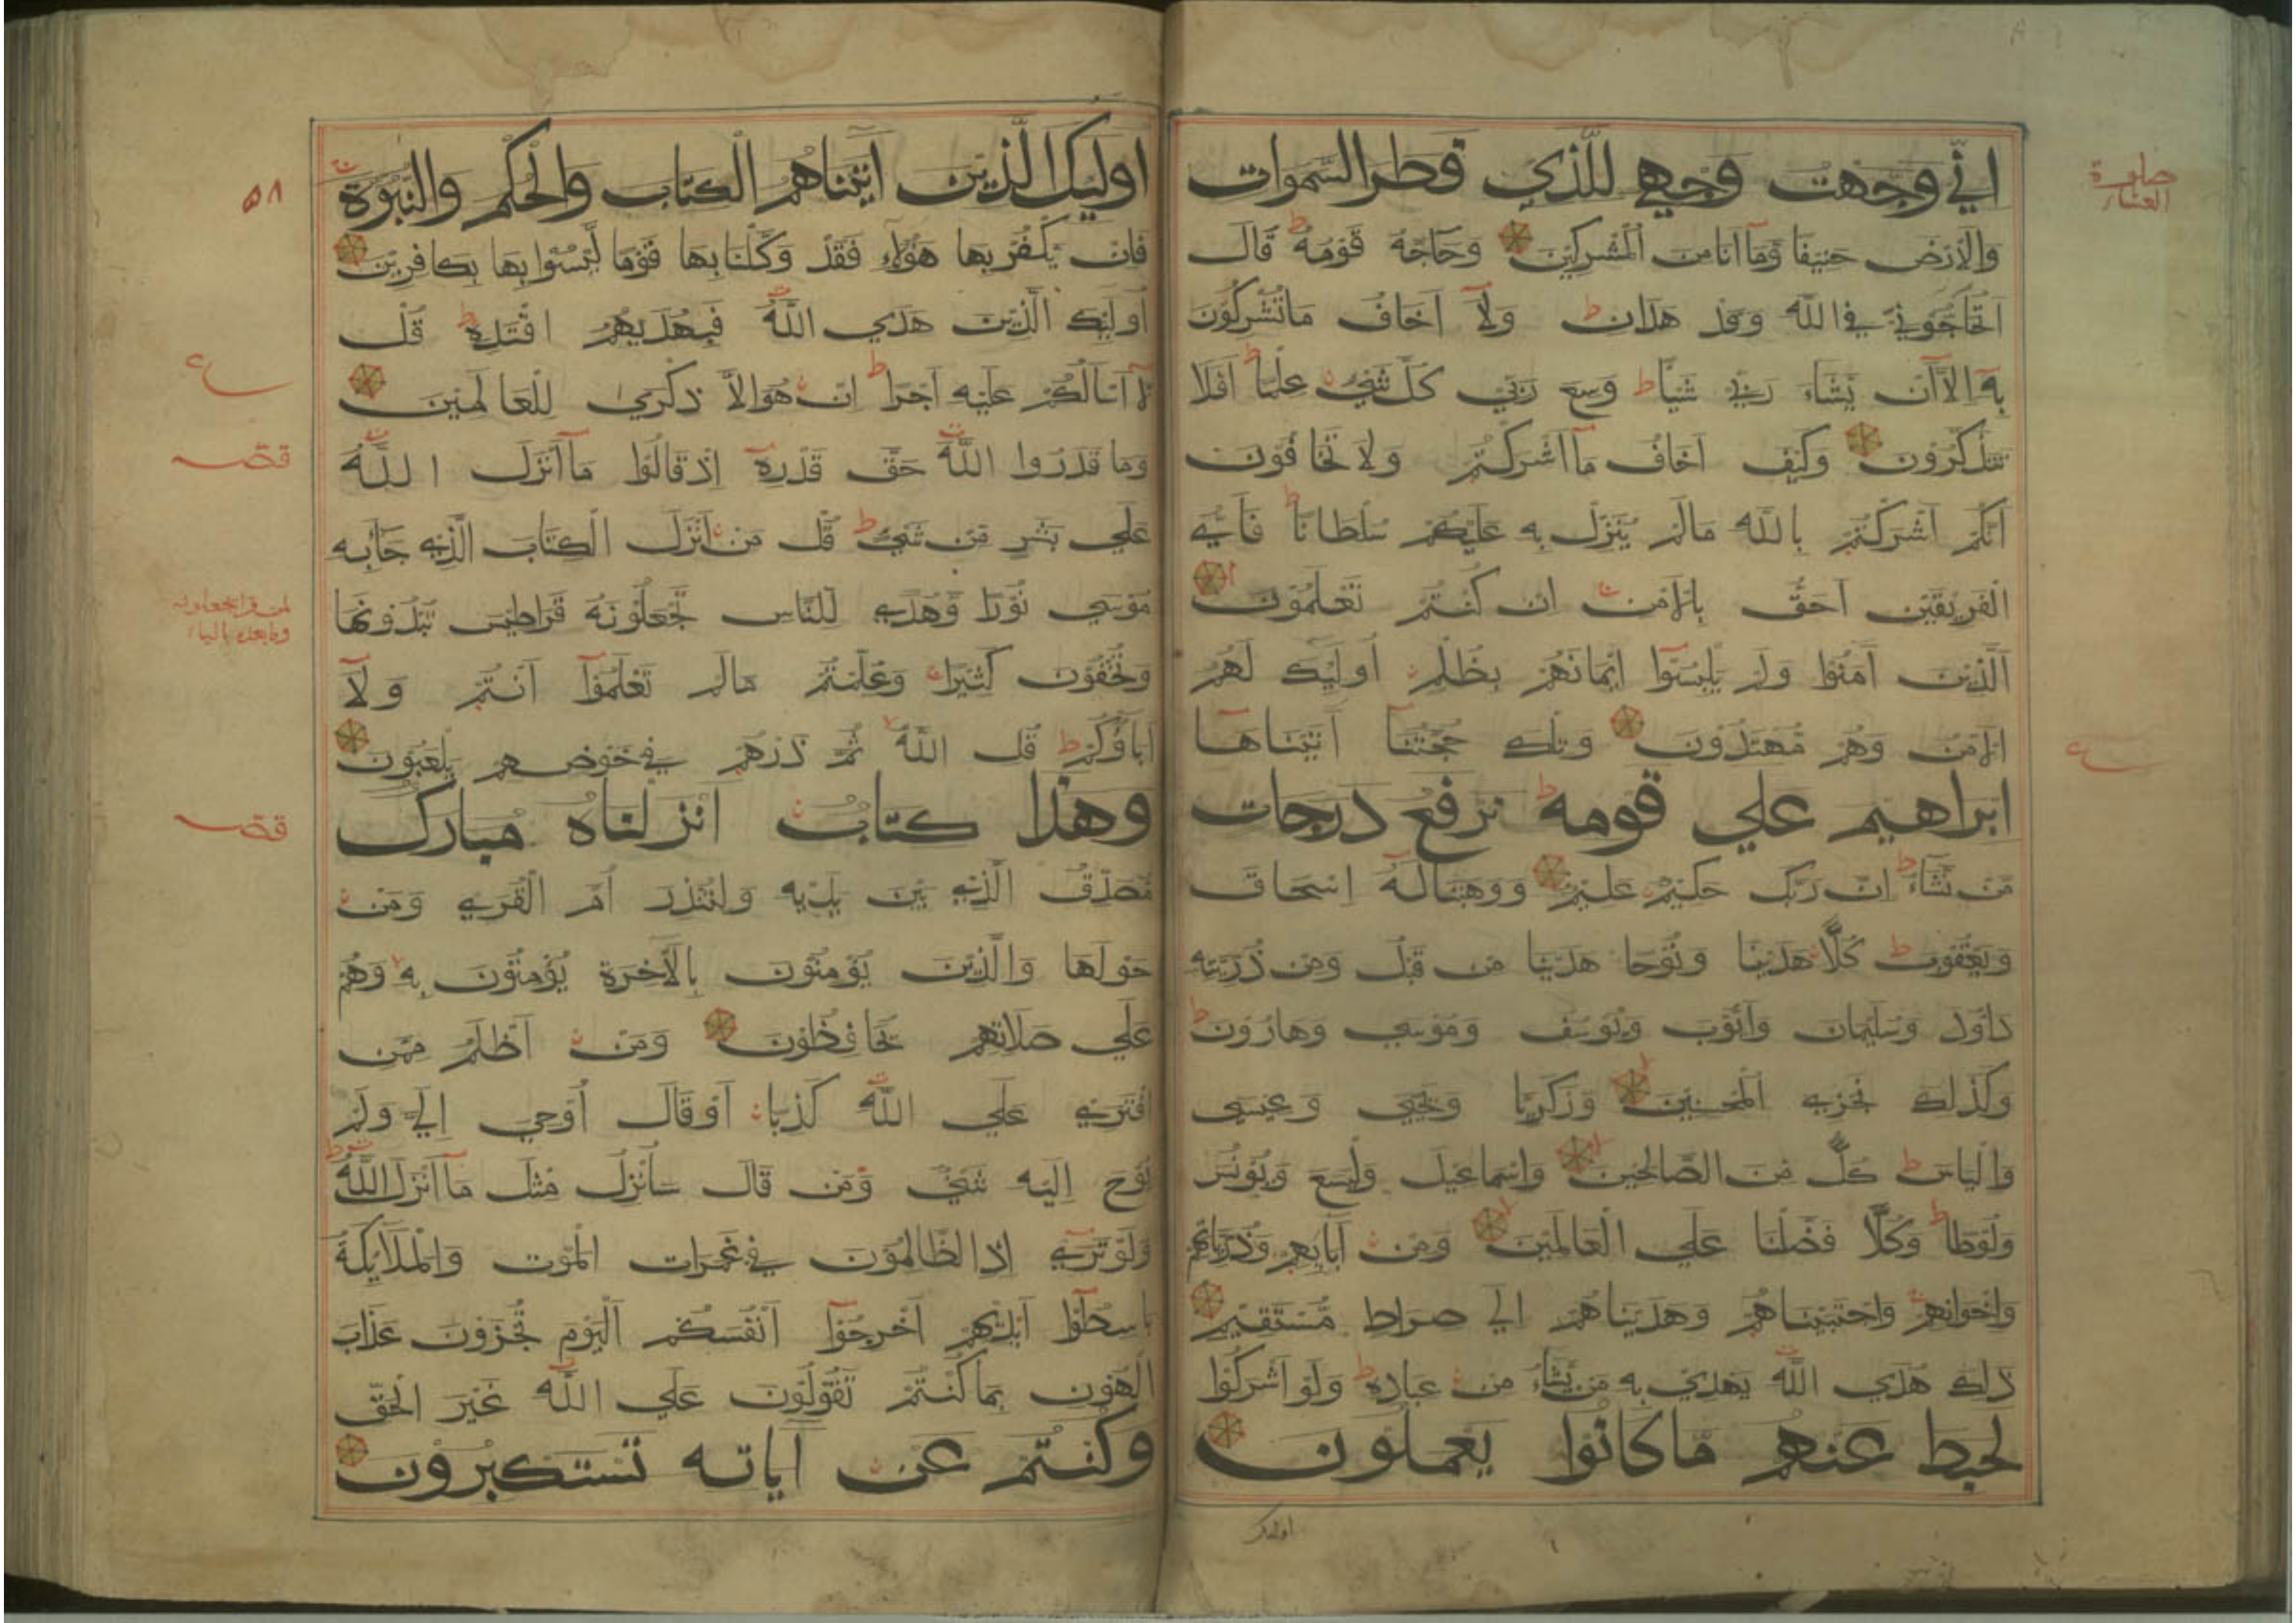 اني وجهت وجهي للذي فطر السموات
والارض حنيفا وما انا من المشركين وحاجه قومه قال
اتحاجوني في الله وقد هدان ولا اخاف ما تشركون
به الا ان يشاء ربي شيا وسع ربي كل شئ علما افلا
تتذكرون وكيف اخاف ما اشركتم ولا تخافون
انكم اشركتم بالله مالم ينزل به عليكم سلطانا فاي
الفريقين احق بالامن ان كنتم تعلمون
الذين امنوا ولم يلبسوا ايمانهم بظلم اوليك لهم
الامن وهم مهتدون وتلك حجتنا اتيناها
ابراهيم علي قومه نرفع درجات
من نشاء ان ربك حكيم عليم ووهبنا له اسحاق
ويعقوب كلا هدينا ونوحا هدينا من قبل ومن ذريته
داوود وسليمان وايوب ويوسف وموسي وهارون
وكذلك نجزي المحسنين وزكريا ويحيي وعيسي
والياس كل من الصالحين واسماعيل واليسع ويونس
ولوطا وكلا فضلنا علي العالمين ومن ابايهم وذرياتهم
واخوانهم واجتبيناهم وهديناهم الي صراط مستقيم
ذلك هدي الله يهدي به من يشاء من عباده ولو اشركوا
لحبط عنهم ما كانوا يعملون
اولئك
صلوة
العشاء
ع
اوليك الذين اتيناهم الكتاب والحكم والنبوة
فان يكفر بها هؤلاء فقد وكلنا بها قوما ليسوا بها بكافرين
اوليك الذين هدي الله فبهديهم اقتده قل
لا اسالكم عليه اجرا ان هو الا ذكري للعالمين
وما قدروا الله حق قدره اذ قالوا ما انزل الله
علي بشر من شئ قل من انزل الكتاب الذي جا به
موسي نورا وهدي للناس تجعلونه قراطيس تبدونها
وتخفون كثيرا وعلمتم مالم تعلموا انتم ولا
اباؤكم قل الله ثم ذرهم في خوضهم يلعبون
وهذا كتاب انزلناه مبارك
مصدق الذي بين يديه ولتنذر ام القري ومن
حولها والذين يؤمنون بالاخرة يؤمنون به وهم
علي صلاتهم يحافظون ومن اظلم ممن
افتري علي الله كذبا او قال اوحي الي ولم
يوح اليه شئ ومن قال سانزل مثل ما انزل الله
ولو تري اذ الظالمون في غمرات الموت والملايكة
باسطوا ايديهم اخرجوا انفسكم اليوم تجزون عذاب
الهون بما كنتم تقولون علي الله غير الحق
وكنتم عن اياته تستكبرون
٥٨
ع
قصه
قصه